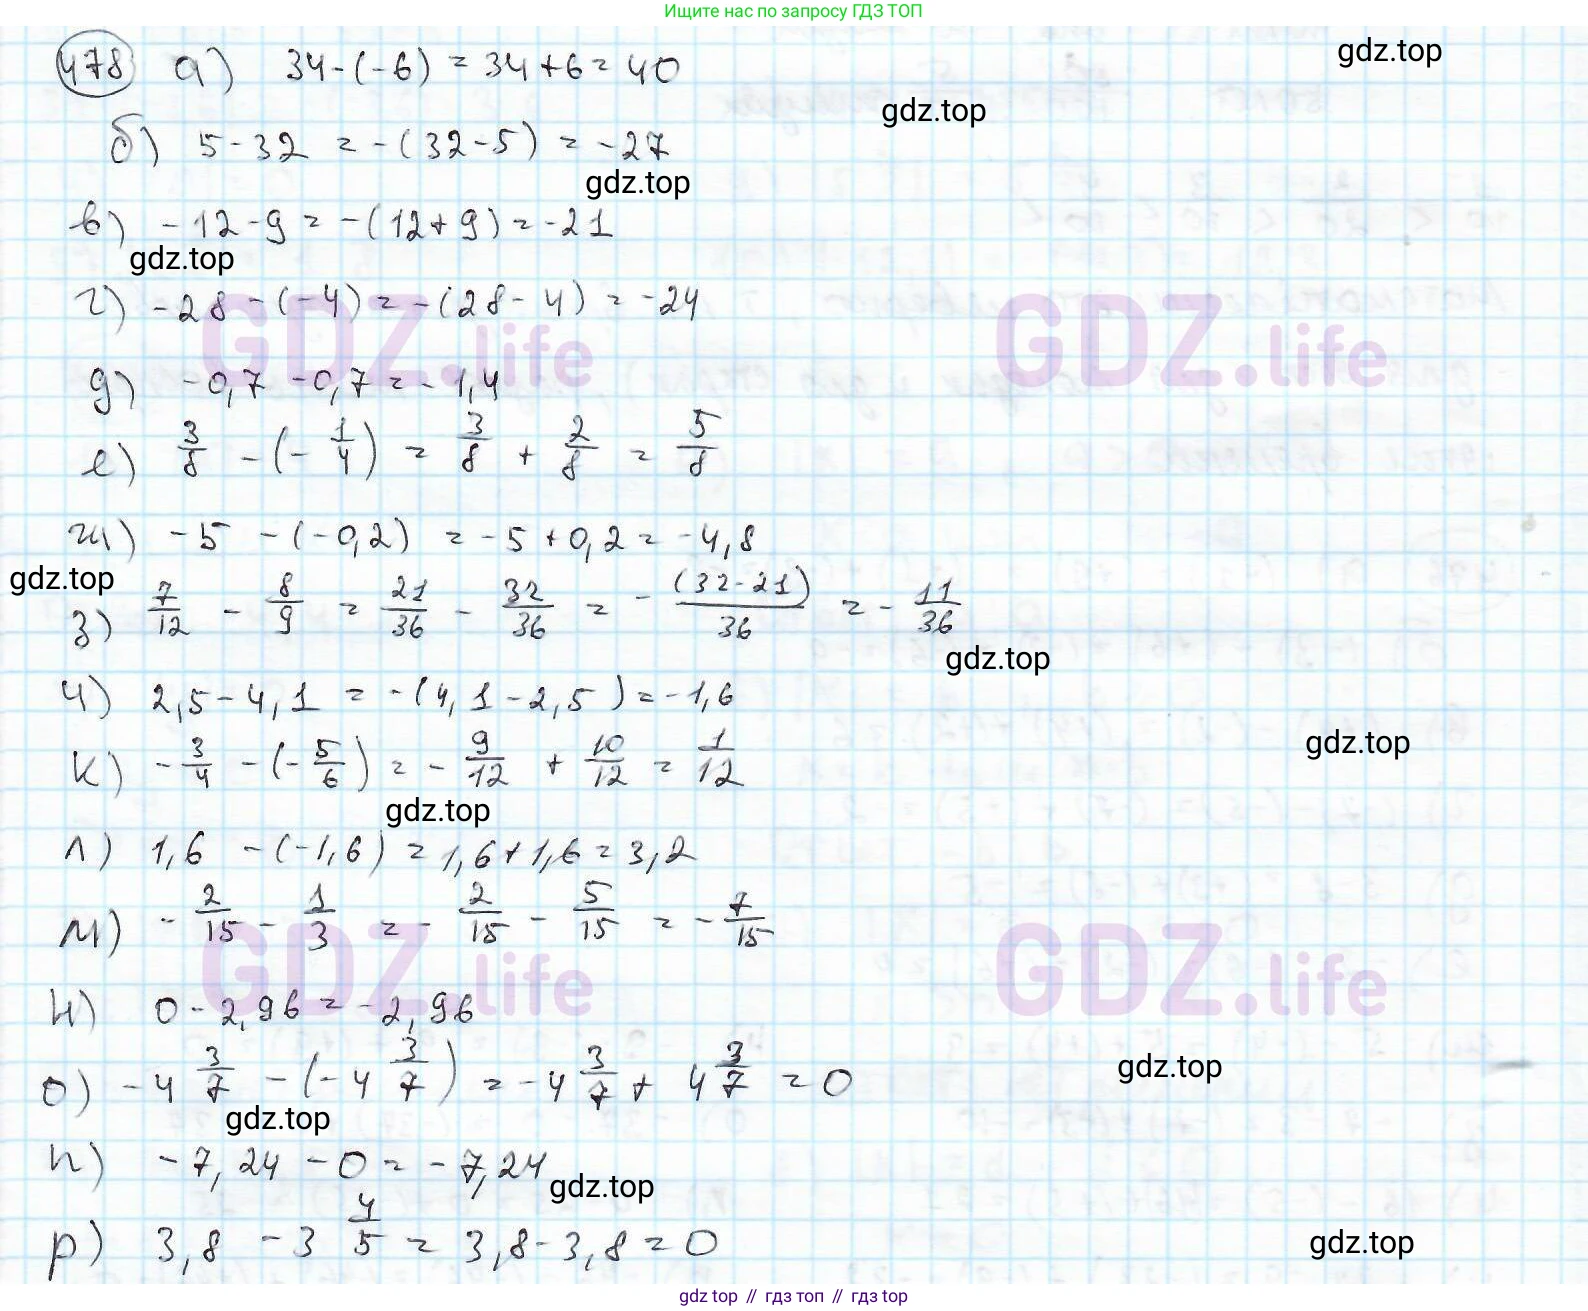 Ищите нас по запросу ГДЗ ТОП
478 а) 34-(-6) = 34+6 = 40
gdz.top
gdz.top
б) 5-32 = -(32-5) = -27
gdz.top
в) -12-9 = -(12+9) = -21
gdz.top
г) -28-(-4) = -(28-4) = -24
GDZ.life GDZ.life
д) -0,7-0,7 = -1,4
е) 3/8 - (-1/4) = 3/8 + 2/8 = 5/8
ж) -5-(-0,2) = -5+0,2 = -4,8
gdz.top
з) 7/12 - 8/9 = 21/36 - 32/36 = - (32-21)/36 = - 11/36
gdz.top
и) 2,5-4,1 = -(4,1-2,5) = -1,6
gdz.top
к) -3/4 - (-5/6) = -9/12 + 10/12 = 1/12
gdz.top
л) 1,6-(-1,6) = 1,6+1,6 = 3,2
м) -2/15 - 1/3 = -2/15 - 5/15 = -7/15
GDZ.life GDZ.life
н) 0-2,96 = -2,96
о) -4 3/7 - (-4 3/7) = -4 3/7 + 4 3/7 = 0
gdz.top
gdz.top
п) -7,24-0 = -7,24
gdz.top
р) 3,8 - 3 4/5 = 3,8-3,8 = 0
gdz.top
gdz top // гдз топ // гдз top